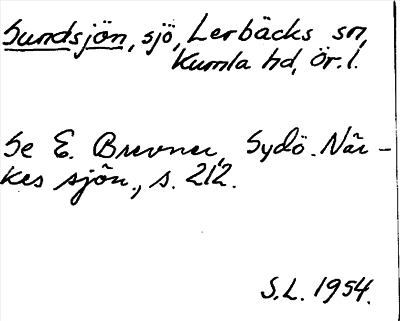 Sundsjön, sjö, Lerbäcks sn,
Kumla hd, Ör. l.
Se E. Brevner, Sydö. När-
kes sjön., s. 212.
S.L. 1954.